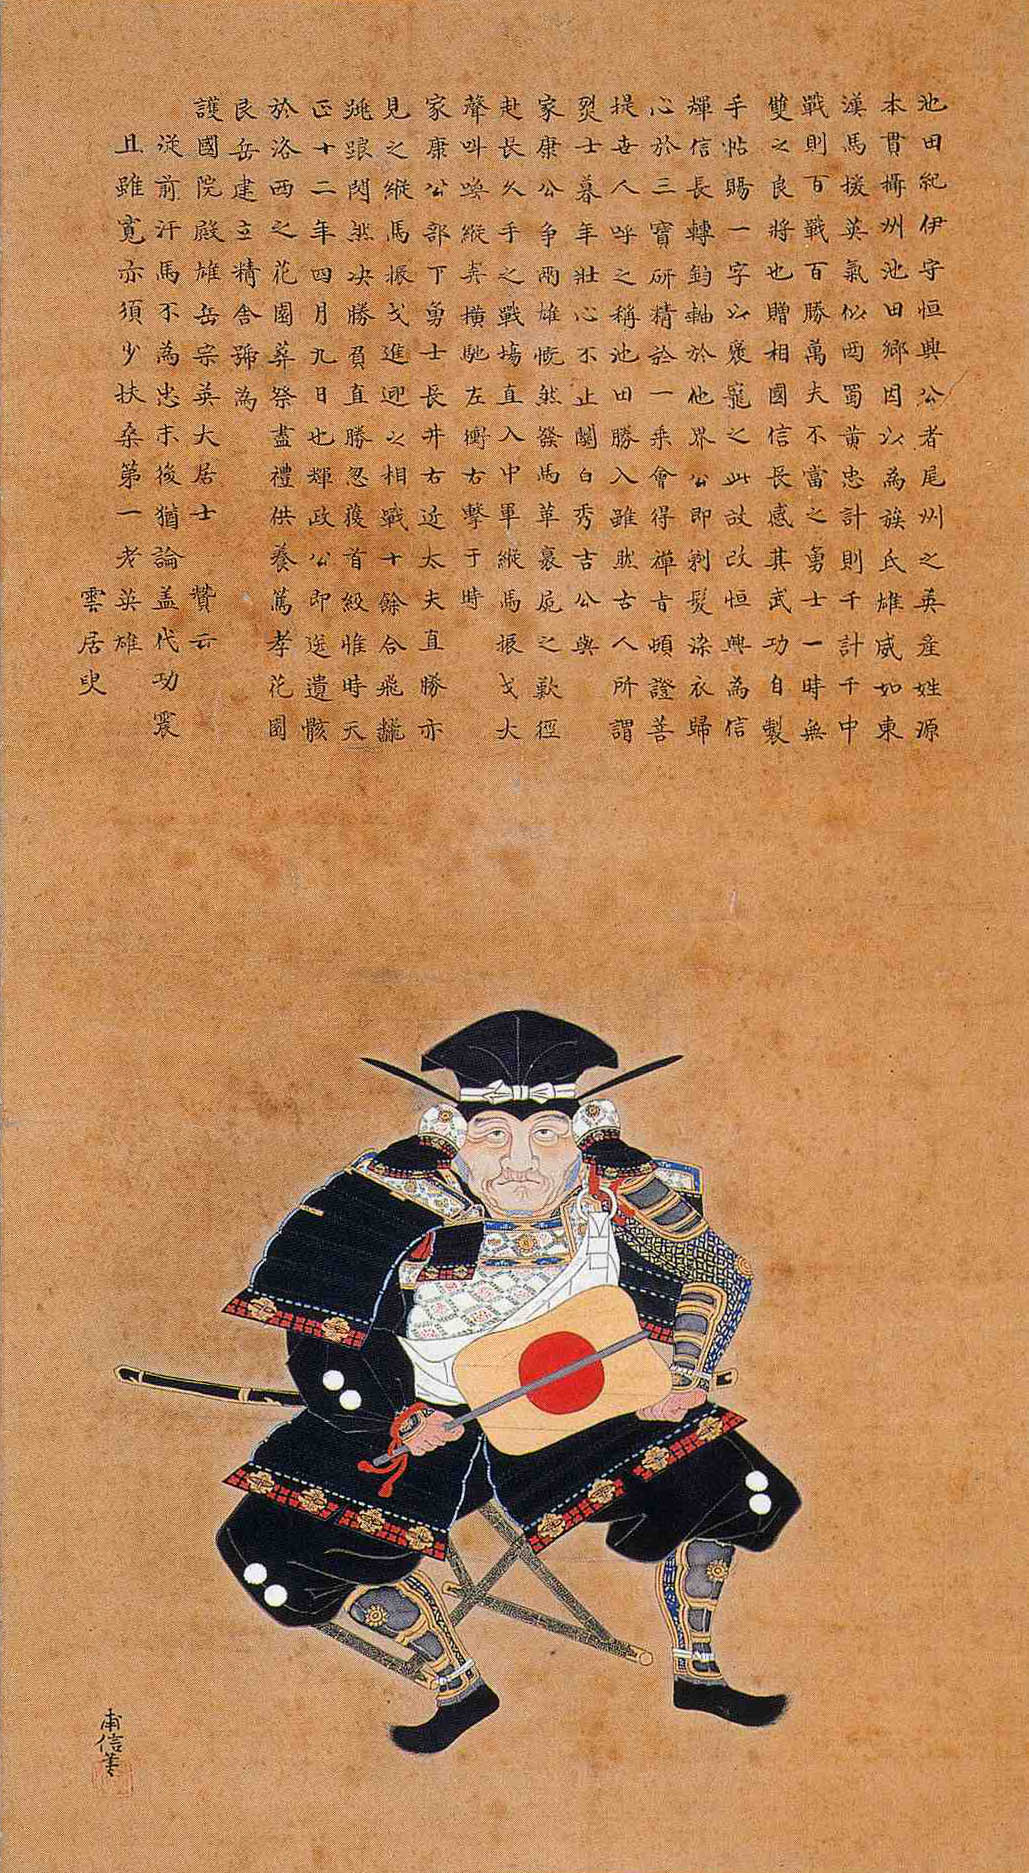 池田紀伊守恒興公者尾州之英産姓源
本貫攝州池田郷因以為族氏雄威如東
漢馬援英氣似西蜀黄忠計則千計千中
戰則百戰百勝萬夫不當之勇士一時無
雙之良將也贈相國信長感其武功自製
手帖賜一字以褒寵之此故改恒興為信
輝信長轉鈞軸於他界公即剃髮染衣歸
心於三寶研精於一乘會得禪旨頓證菩
提世人呼之稱池田勝入雖然古人所謂
烈士暮年壯心不止關白秀吉公與
家康公争兩雄慨然發馬革裹屍之歎徑
赴長久手之戰場直入中軍縱馬振戈大
聲叫喚縱奔横馳左衝右擊于時
家康公部下勇士長井右近太夫直勝亦
見之縱馬振戈進迎之相戰十餘合飛龍
跳踉閃然决勝負直勝忽獲首級惟時天
正十二年四月九日也輝政公即送遺骸
於洛西之花園葬祭盡禮供養篤孝花園
艮岳建立精舍號為
護國院殿雄岳宗英大居士 贊云
從前汗馬不為忠末後猶論盖代功震
且雖寛亦須少扶桑第一老英雄
雲居叟
甫信筆